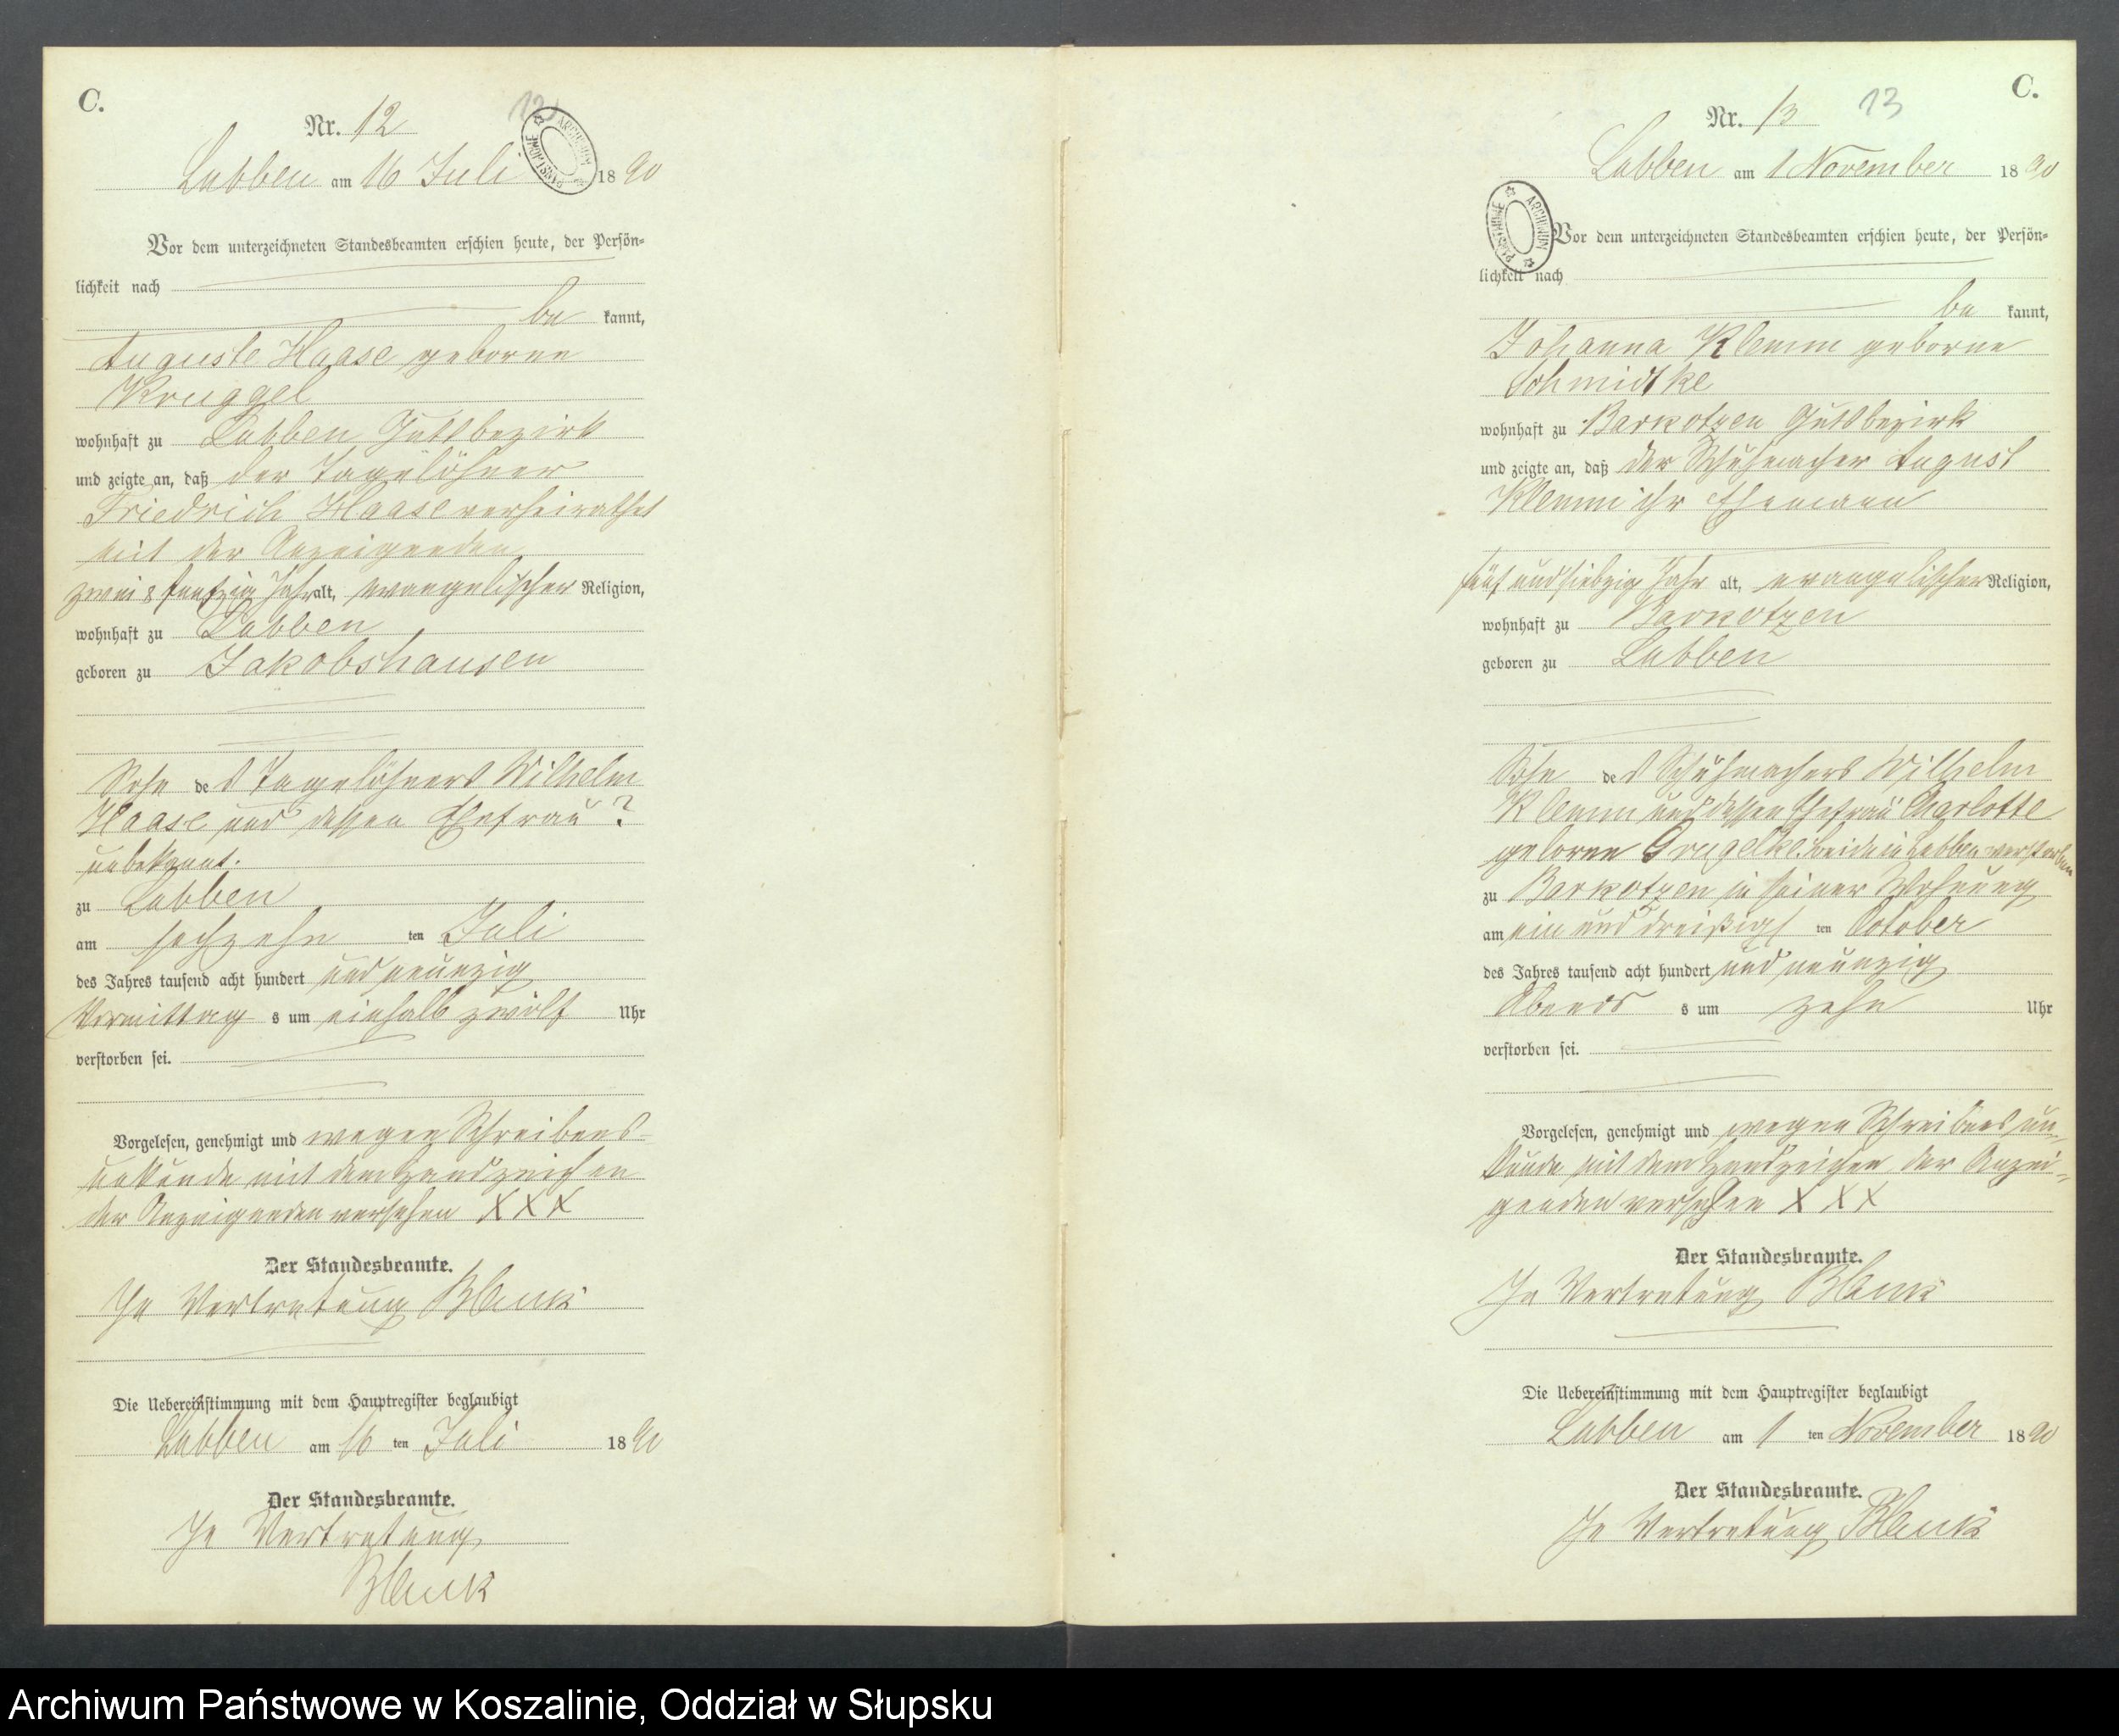 C.
Nr. 12
12
ARCHIWUM PAŃSTWOWE
Labben am 16 Juli 1890
Vor dem unterzeichneten Standesbeamten erschien heute, der Persön-
lichkeit nach
be kannt,
Auguste Haase geborne
Kruggel
wohnhaft zu Labben Gutsbezirk
und zeigte an, daß der Tagelöhner
Friedrich Haase verheirathet
mit der Anzeigenden
zwei & funfzig Jahr alt, evangelischer Religion,
wohnhaft zu Labben
geboren zu Jakobshausen
Sohn des Tagelöhners Wilhelm
Haase und dessen Ehefrau ?
unbekannt.
zu Labben
am sechzehn ten Juli
des Jahres tausend acht hundert und neunzig
Vormittag s um einhalb zwölf Uhr
verstorben sei.
Vorgelesen, genehmigt und wegen Schreibens-
unkunde mit dem Handzeichen
der Anzeigenden versehen XXX
Der Standesbeamte.
In Vertretung Blank
Die Uebereinstimmung mit dem Hauptregister beglaubigt
Labben am 16 ten Juli 1890
Der Standesbeamte.
In Vertretung
Blank
C.
Nr. 13
13
Labben am 1 November 1890
ARCHIWUM PAŃSTWOWE
Vor dem unterzeichneten Standesbeamten erschien heute, der Persön-
lichkeit nach
be kannt,
Johanna Klemm geborne
Schmidtke
wohnhaft zu Barkotzen Gutsbezirk
und zeigte an, daß der Schuhmacher August
Klemm ihr Ehemann
fünf und siebzig Jahr alt, evangelischer Religion,
wohnhaft zu Barkotzen
geboren zu Labben
Sohn des Schuhmachers Wilhelm
Klemm und dessen Ehefrau Charlotte
geborne beide in Labben verstorben
zu Barkotzen in seiner Wohnung
am ein und dreißigs ten October
des Jahres tausend acht hundert und neunzig
Abends s um zehn Uhr
verstorben sei.
Vorgelesen, genehmigt und wegen Schreibens un-
kunde mit dem Handzeichen der Anzei-
genden versehen X X X
Der Standesbeamte.
In Vertretung Blank
Die Uebereinstimmung mit dem Hauptregister beglaubigt
Labben am 1 ten November 1890
Der Standesbeamte.
In Vertretung Blank
Archiwum Państwowe w Koszalinie, Oddział w Słupsku